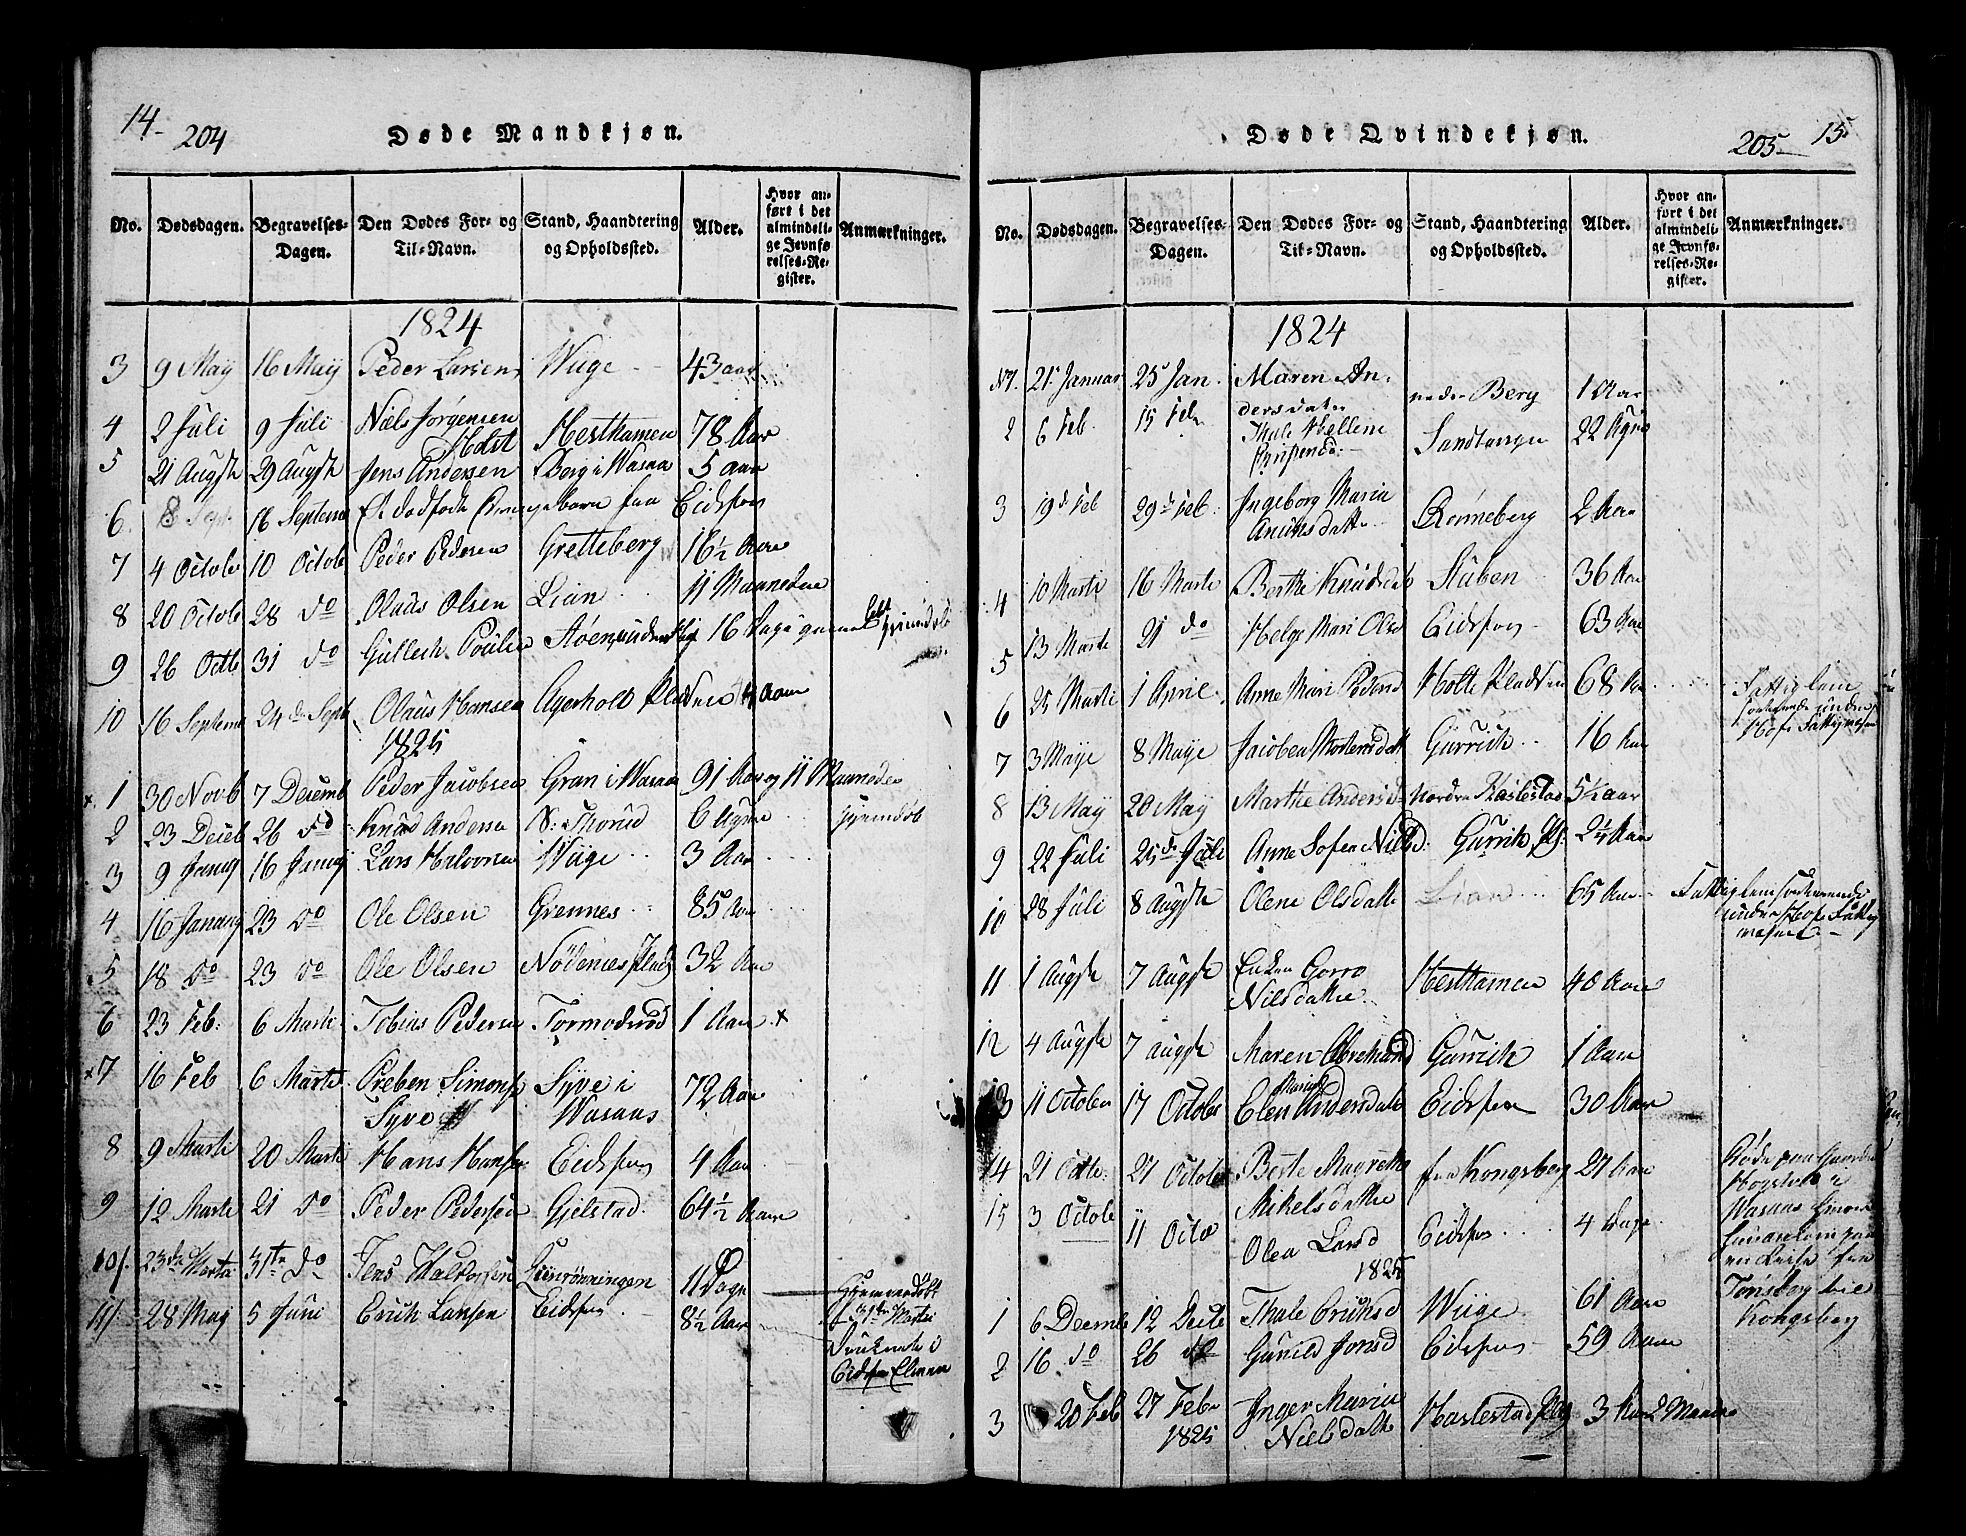 14.
204
Døde Mandkjøn.
No.
Dødsdagen.
Begravelses-
Dagen.
Den Dødes For- og
Til-Navn.
Stand, Haandtering
og Opholdssted.
Alder.
Hvor an-
ført i det
almindeli-
ge Jevnfø-
relses-Re-
gister.
Anmærkninger.
1824
3 9 May 16 May Peder Larsen Wiige 43 aar
4 2 Juli 9 Juli Niels Jørgensen
Holst Hesthamen 78 Aar
5 21 Augst 29 Augst Jens Andersen Berg i Wasaa 5 aar
6. 8 Sept. 16 Septem Et dødfødt fra Eidsfos
7 4 Octob 10 Octob Peder Pedersen Gretteberg 16½ Aar
8 20 Octob 28 do Olaus Olsen Lian 11 Maaneder
9 26 Octb 31 do Gullech Poulsen 16 Dage gammel hiemdøbt
10 16 Septem 24de Sept Olaus Hansen Agerholt Pladsen 4 Aar
1825
× 1 30 Novb 7 Decemb Peder Jacobsen Gran i Wasaa 91 Aar og 11 Maaneder
2 23 Deceb 26 do Knud Anders N: Thorud 6 hjemdøb
3 9 Janry 16 Janry Lars Halvorsen Wiige 3 Aar
4 16 Januarj 23 do Ole Olsen Grennes 85 Aar
5 18 do 23 do Ole Olsen Nødenes Plads 32 Aar
6 23 Feb: 6 Marti Tobias Pedersen Tormodsrød 1 Aar ×
×7 16 Feb 6 Marti Preben Simons
Syve Syve i
Wasaas 72 Aar
8 9 Marti 20 Marti Hans Hansen Eidsfos 4 Aar
9 12 Marti 21 do Peder Pedersen Gjelstad 64½ Aar
10/. 23de Marti 31te do Jens 11 Dage Hjemmedøbt
11/. 28 Maj 5 Juni Erich Larsen Eidsfos 8½ Aar
Druknede i
Eidsfos Elven
Døde Qvindekjøn.
205 15
No.
Dødsdagen.
Begravelses-
Dagen.
Den Dødes For- og
Til-Navn.
Stand, Haandtering
og Opholdssted.
Alder.
Hvor an-
ført i det
almindeli-
ge Jevnfø-
relses-Re-
gister.
Anmærkninger.
1824
N1. 21 Januar 25 Jan. Maren An-
dersdater nedre Berg 1 Aar
2 6 Feb. 15 Feb Thale Hellene
Sandtangen 22
3 19de Feb 29de Feb: Ingeborg Maria
Rønneberg 2 Aar
4 10 Marti 16 Marti Berthe Knudsdat Stuben 36 Aar
5 13 Marti 21 do Helge Mari Olsd Eidsfos 63 Aar
6 25 Marti 1 April Anne Mari Pedersd Holte Pladsen 68 Aar Fattiglem
sorterende under
Hofs Fattigvæsen
7 3 Maye 8 Maye Jacobea Mortensdatt Gurrich 16 Aar
8 13 May 20 May Marthe Andersd Nordre Haslestad 5½ aar
9 22 Juli 25de Juli Anne Sofea Nielsd: Gurrich Pls: 2¼ Aar
10 28 Juli 8 Augst Olene Olsdatte Lian 65 Aar Fattiglem sorterende
under Hofs Fattig
væsen
11 1 Augst 7 Augst
Nilsdatter Hesthamen 40 Aar
12 4 Augst 7 Augst Maren Abrahamsd Gurrich 1 Aar
13 11 October 17 October Elen Maria
Andersdatte Eidsfos 30 Aar
14 21 Octbr 27 October Berte Magrethe
Mikelsdatter fra Kongsberg 27 Aar Døde paa Gaarden
15 3 Octob 11 Octo Olea Larsd Eidsfos 4 Dage
Wasaas
en Reise fra
Tønsberg til
Kongsberg
1825
1 6 Decemb 12 Dec Thale Wiige 61 Aar
2 16 do 26 do Gunild Jonsd Eidsfos 59 Aar
3 20 Feb 27 Feb
1825 Inger Maria
Nielsdatte Haslestad Plads 3 Aar 2 Maaned